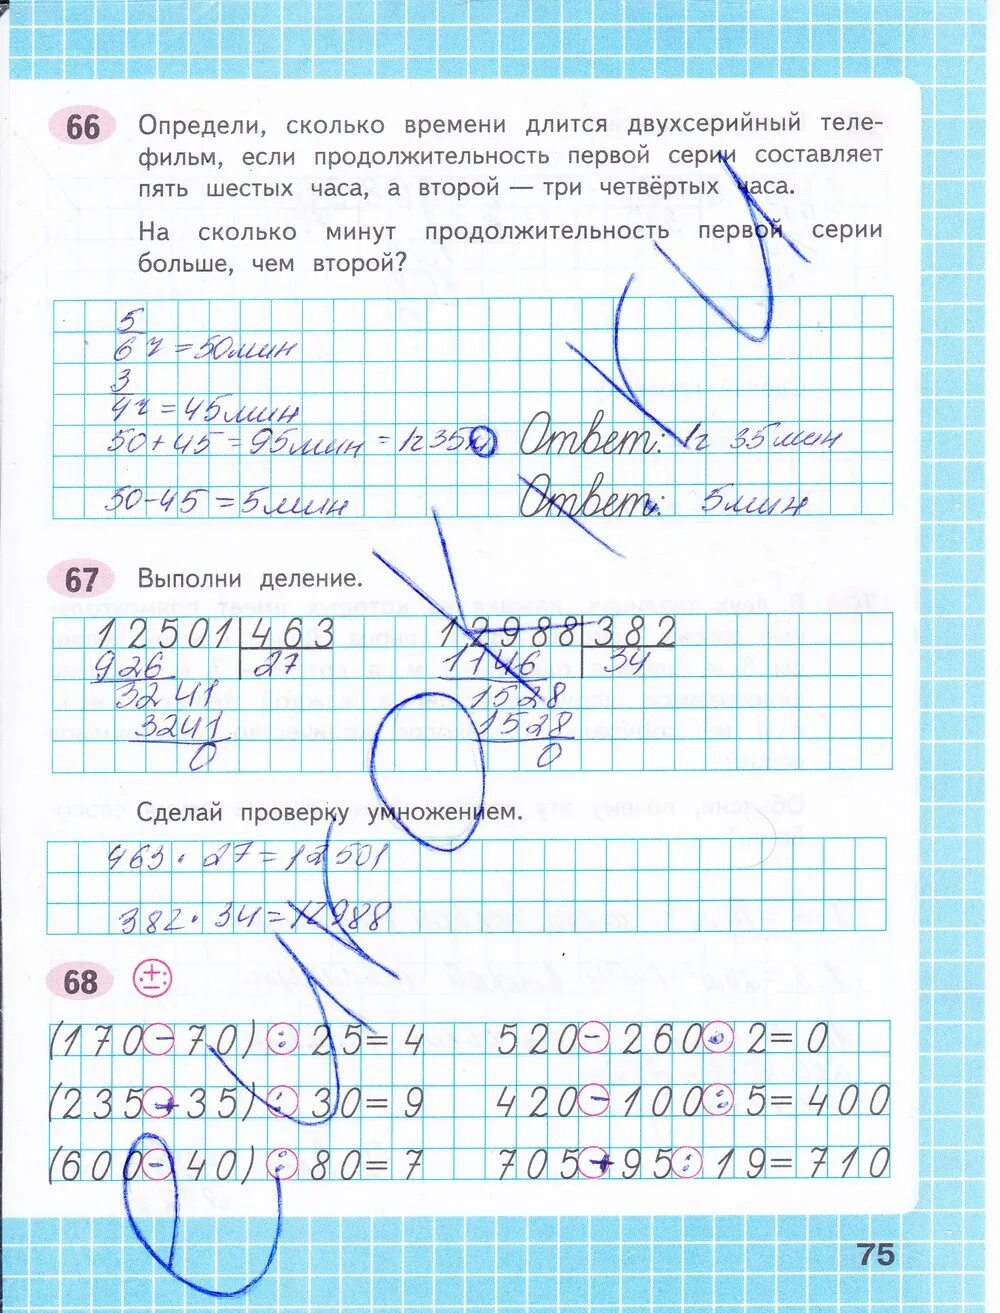 66 Определи, сколько времени длится двухсерийный теле-
фильм, если продолжительность первой серии составляет
пять шестых часа, а второй — три четвёртых часа.
На сколько минут продолжительность первой серии
больше, чем второй?
5
6 ч = 50 мин
3
4 ч = 45 мин
50 + 45 = 95 мин = 1ч 35м Ответ: 1ч 35 мин
50 - 45 = 5 мин Ответ: 5 мин
67 Выполни деление.
12501 463 12988 382
926 27 1146 34
3241 1528
3241 1528
0 0
Сделай проверку умножением.
463 · 27 = 12501
382 · 34 = 12988
68
(170 - 70) : 25 = 4 520 - 260 · 2 = 0
(235 + 35) : 30 = 9 420 - 100 : 5 = 400
(600 - 40) : 80 = 7 705 + 95 : 19 = 710
75